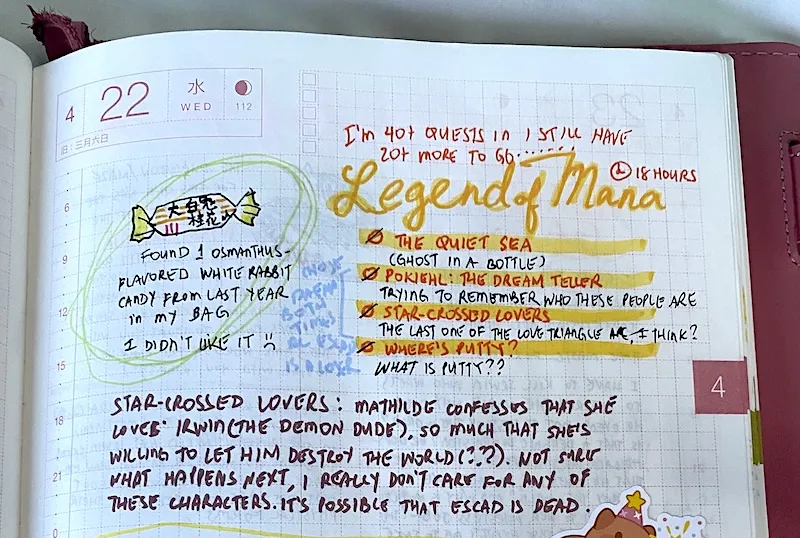 4
22
水
WED
112
旧:三月六日
I'M 40+ QUESTS IN I STILL HAVE
20+ MORE TO GO.......
18 HOURS
Legend of Mana
THE QUIET SEA
(GHOST IN A BOTTLE)
POKIEHL: THE DREAM TELLER
TRYING TO REMEMBER WHO THESE PEOPLE ARE
STAR-CROSSED LOVERS
THE LAST ONE OF THE LOVE TRIANGLE ARC, I THINK?
WHERE'S PUTTY?
WHAT IS PUTTY??
大白兔
桂花
FOUND 1 OSMANTHUS-
FLAVORED WHITE RABBIT
CANDY FROM LAST YEAR
in MY BAG
I DIDN'T LIKE IT
BOTH
TIMES
ESCAD
IS A LOSER
STAR-CROSSED LOVERS: MATHILDE CONFESSES THAT SHE
LOVES IRWIN (THE DEMON DUDE), SO MUCH THAT SHE'S
WILLING TO LET HIM DESTROY THE WORLD (??). NOT SURE
WHAT HAPPENS NEXT, I REALLY DON'T CARE FOR ANY OF
THESE CHARACTERS. IT'S POSSIBLE THAT ESCAD IS DEAD.
6
9
12
15
18
21
0
4